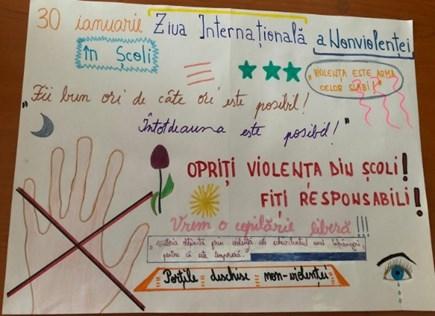 30 ianuarie Ziua Internațională a Nonviolenței
în Școli
"VIOLENȚA ESTE ARMA
CELOR SLABI"
"Fii bun ori de câte ori este posibil!
Întotdeauna este posibil!"
OPRIȚI VIOLENȚA DIN ȘCOLI!
FITI RESPONSABILI!
Vrem o copilărie liberă!!!
obținută prin
pentru că este temporară.
Porțile deschise non-violenței